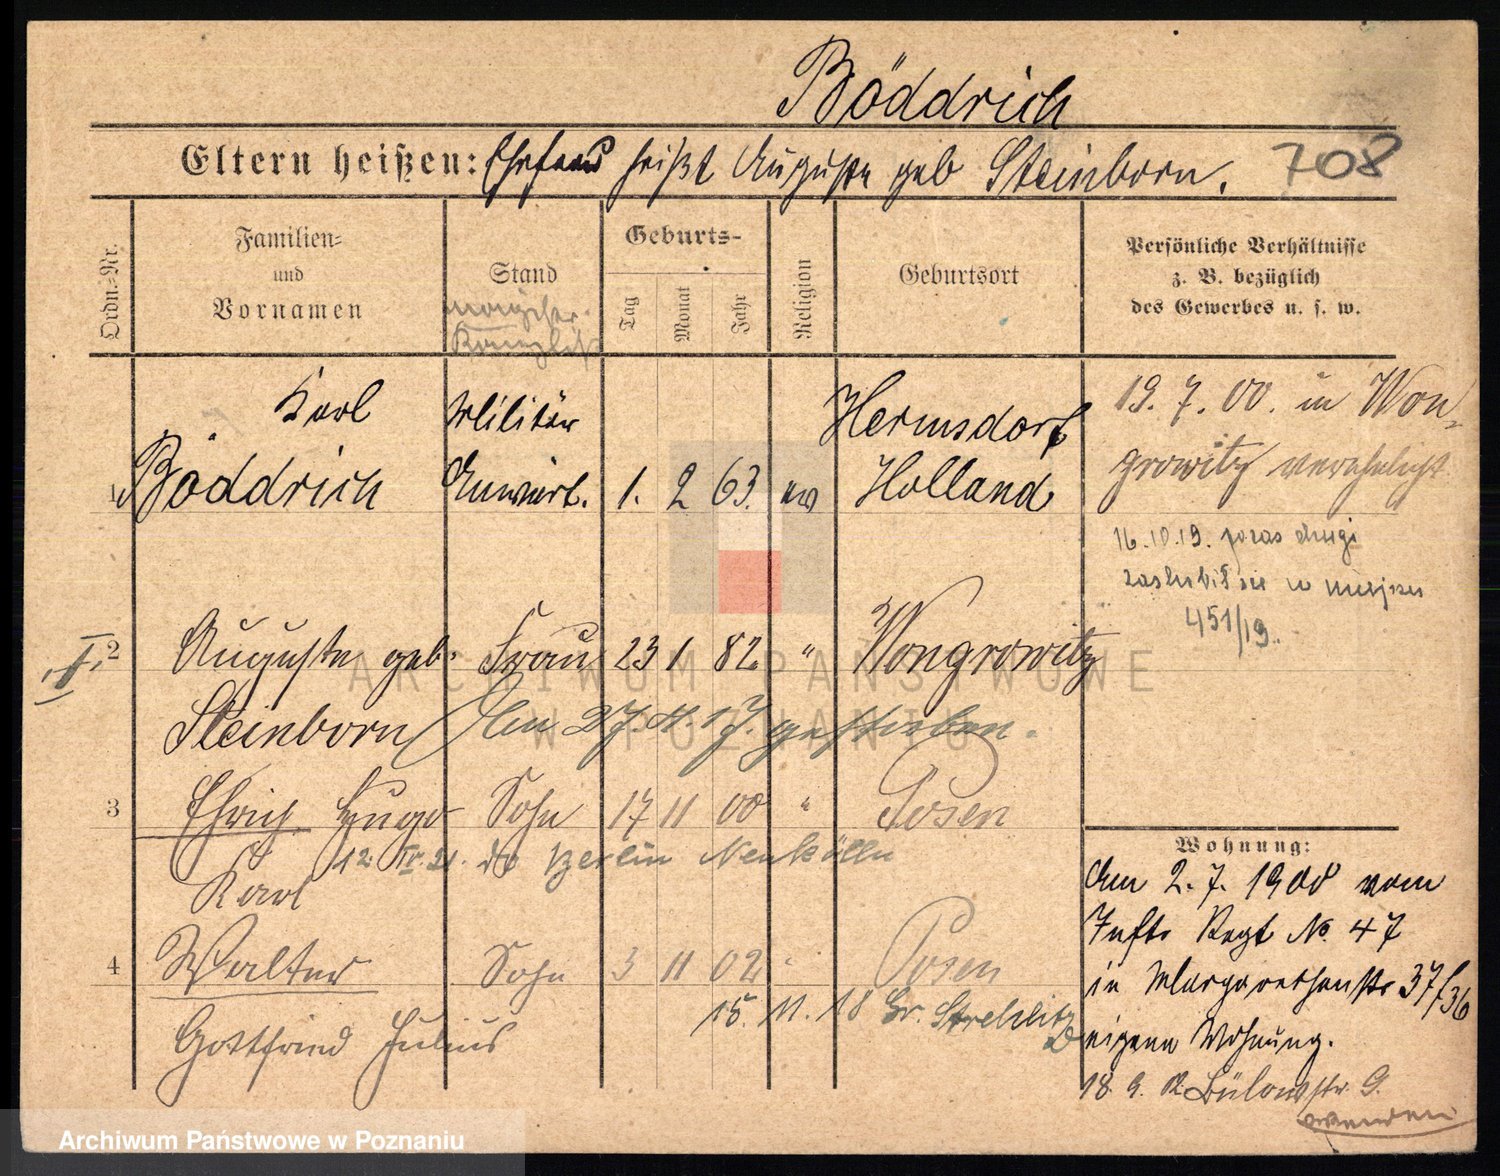 Böddrich
Eltern heißen: Ehefrau heißt Auguste geb Steinborn. 708
Ordn.-Nr.
Familien=
und
Vornamen
Stand
Geburts-
Tag
Monat
Jahr
Religion
Geburtsort
Persönliche Verhältnisse
z. B. bezüglich
des Gewerbes u. s. w.
Karl Militär Hermsdorf
1 Böddrich Anwärt. 1. 2 63. ev Holland
19. 7. 00. in Won-
growitz verehelicht
16.10.19. poraz drugi
zaślubił się w miejscu
451/19.
2 Auguste geb. Frau 23 1 82. " Wongrowitz
Steinborn Am 27. 11. 17. gestorben.
3 Ehrich Hugo Sohn 17 11 00 " Posen
Karl 12. IV. 21. Berlin Neukölln
4 Walter Sohn 3 11 02 " Posen
15. 11. 18 Gr. Strehlitz
Gottfried Julius
Wohnung:
Am 2. 7. 1900 vom
Inftr Regt No. 47
in Margarethenstr 37/36
eigene Wohnung.
18. 9. Bülowstr. 9.
wenden
ARCHIWUM PAŃSTWOWE
W POZNANIU
Archiwum Państwowe w Poznaniu